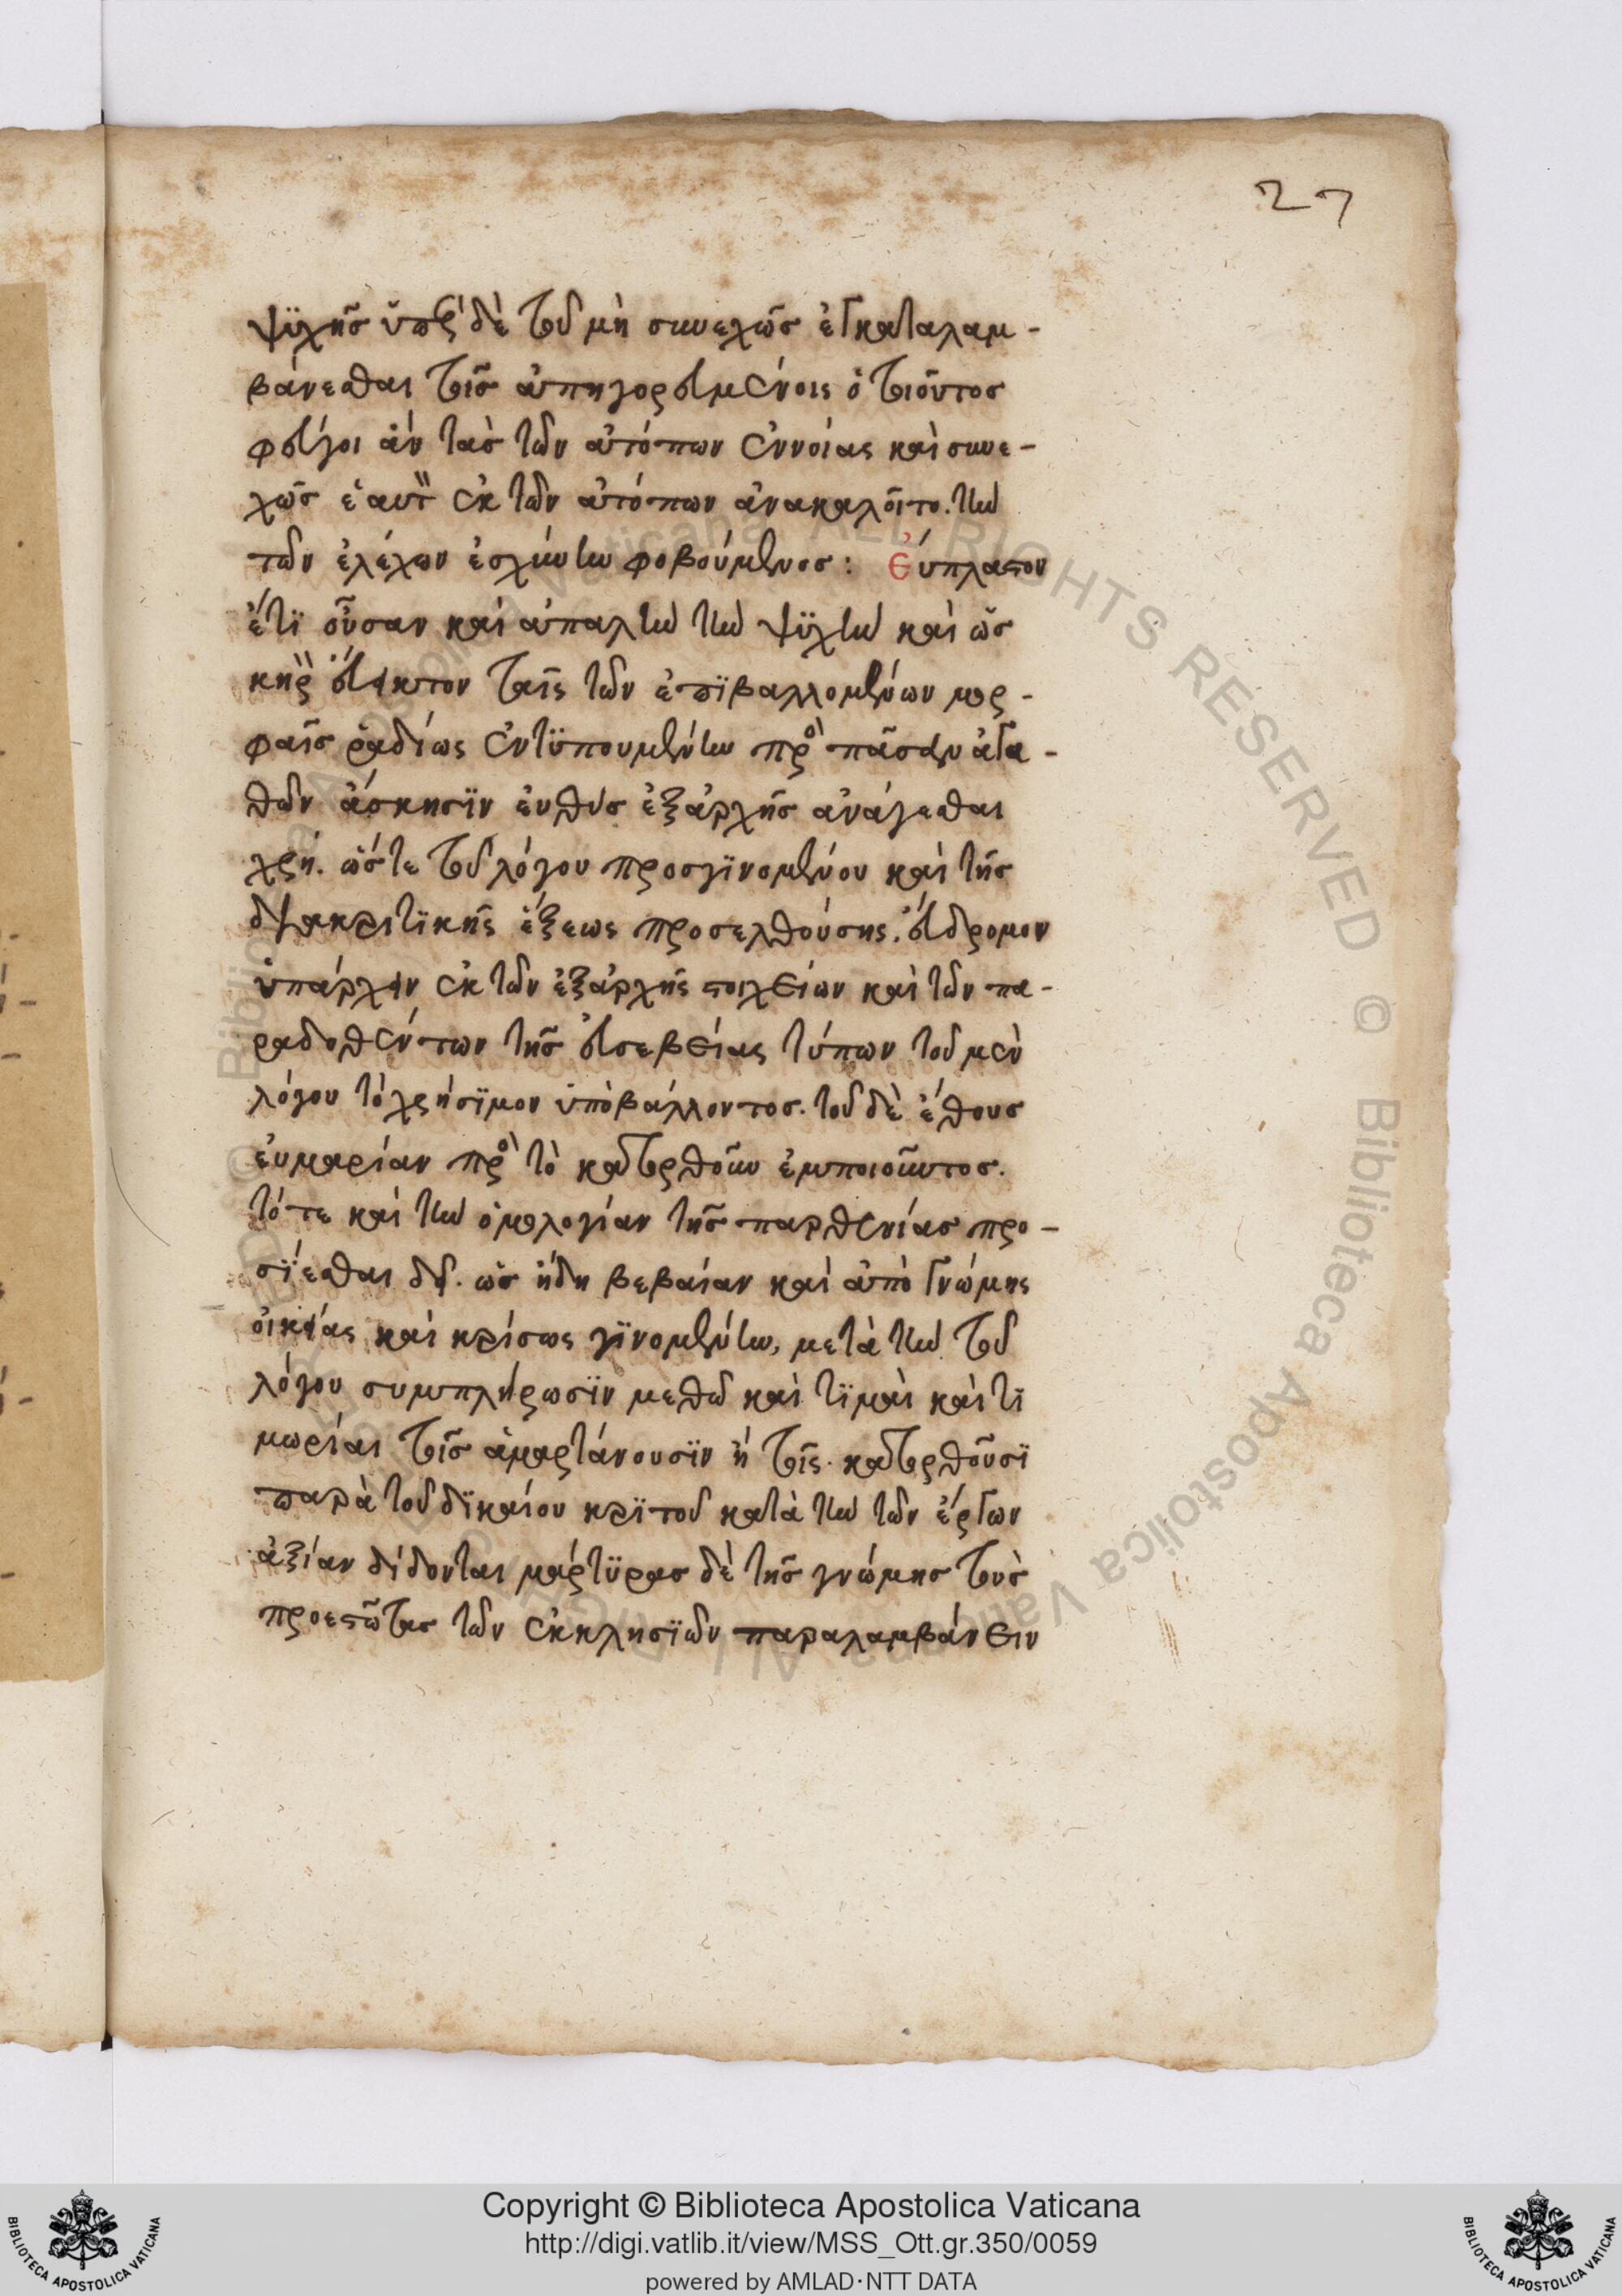 27
ψϋχῆς ὑπὲρ δὲ τοῦ μὴ συνεχῶς ἐγκαταλαμ-
βάνεσθαι τοῖς ἀπηγορευμένοις ὁ τοιοῦτος
φεύγοι ἂν τὰς τῶν ἀτόπων ἐννοίας καὶ συνε-
χῶς ἑαυτὸν ἐκ τῶν ἀτόπων ἀνακαλοῖτο. τὴν
τῶν ἐλέχων ἐσχύνην φοβούμενος: Εὔπλαστον
ἔτϊ οὖσαν καὶ ἁπαλὴν τὴν ψϋχὴν καὶ ὡς
κηρὸν εὔεικτον ταῖς τῶν ἐπϊβαλλομένων μορ-
φαῖς ῥαδίως ἐντϋπουμένην πρὸς πᾶσαν ἀγα-
θῶν ἄσκησϊν εὐθὺς ἐξἀρχῆς ἀνάγεσθαι
χρή. ὥστε τοῦ λόγου προσγϊνομένου καὶ τῆς
διακριτϊκῆς ἕξεως προσελθούσης. εὔδρομον
ὑπάρχειν ἐκ τῶν ἐξἀρχῆς στοιχείων καὶ τῶν πα-
ραδοθέντων τῆς εὐσεβείας τύπων τοῦ μὲν
λόγου τὸ χρήσϊμον ὑποβάλλοντος. τοῦ δὲ ἔθους
εὐμαρίαν πρὸς τὸ κατορθοῦν ἐμποιοῦντος.
τότε καὶ τὴν ὁμολογίαν τῆς παρθενίας προ-
σΐεσθαι δεῖ. ὡς ἤδη βεβαίαν καὶ ἀπὸ γνώμης
οἰκείας καὶ κρίσεως γϊνομένην, μετὰ τὴν τοῦ
λόγου συμπλήρωσϊν μεθ ὧ καὶ τϊμαὶ καὶ τϊ
μωρίαι τοῖς ἁμαρτάνουσϊν ἢ τοῖς κατορθοῦσϊ
παρὰ τοῦ δϊκαίου κρϊτοῦ κατὰ τὴν τῶν ἔργων
ἀξίαν δίδονται μάρτϋρας δὲ τῆς γνώμης τοὺς
προεστῶτας τῶν ἐκκλησϊῶν παραλαμβάνειν
Copyright © Biblioteca Apostolica Vaticana
http://digi.vatlib.it/view/MSS_Ott.gr.350/0059
powered by AMLAD·NTT DATA
BIBLIOTECA APOSTOLICA VATICANA
BIBLIOTECA APOSTOLICA VATICANA